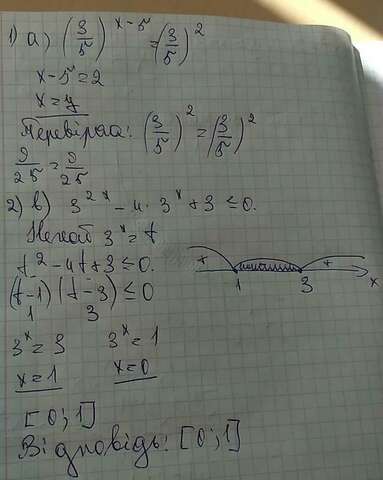 1) а) (3/5)^(x-5) = (3/5)^2
x-5=2
x=7
Перевірка: (3/5)^2 = (3/5)^2
9/25 = 9/25
2) в) 3^(2x) - 4·3^x + 3 ≤ 0.
Нехай 3^x = t
t^2 - 4t + 3 ≤ 0.
(t-1)(t-3) ≤ 0
1 3
+ + 
1 3 x
3^x = 3 3^x = 1
x=1 x=0
[0;1]
Відповідь: [0;1]